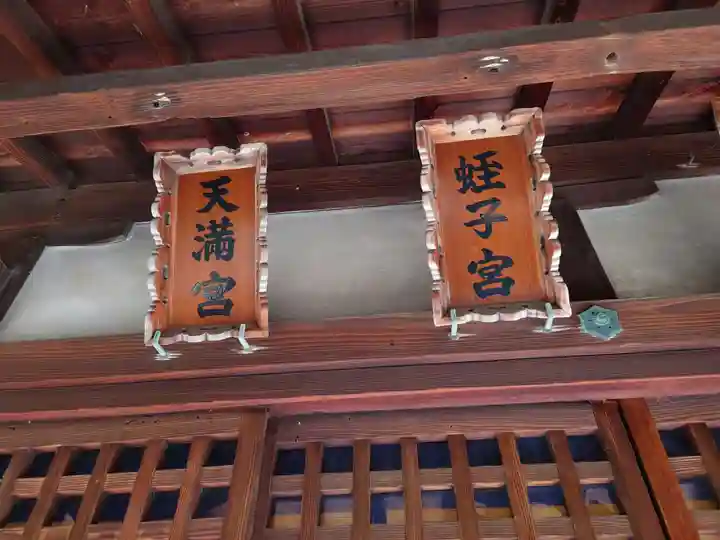 蛭子宮
天満宮